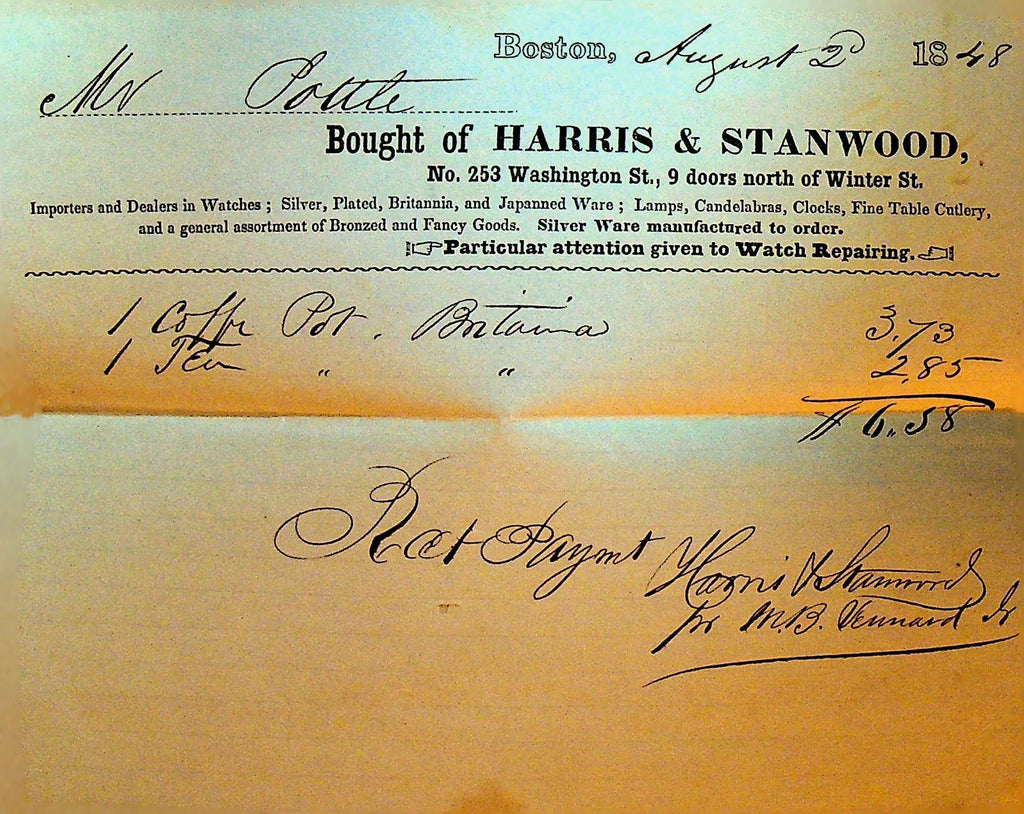 Boston, August 2d 1848
Mr Pottle
Bought of HARRIS & STANWOOD,
No. 253 Washington St., 9 doors north of Winter St.
Importers and Dealers in Watches ; Silver, Plated, Britannia, and Japanned Ware ; Lamps, Candelabras, Clocks, Fine Table Cutlery,
and a general assortment of Bronzed and Fancy Goods. Silver Ware manufactured to order.
☞Particular attention given to Watch Repairing.☜
1 Coffe Pot. Britania 3.73
1 Tea " " 2.85
$ 6.58
Rect Paymt Harris & Stanwood
pr M.B. Vennard Jr